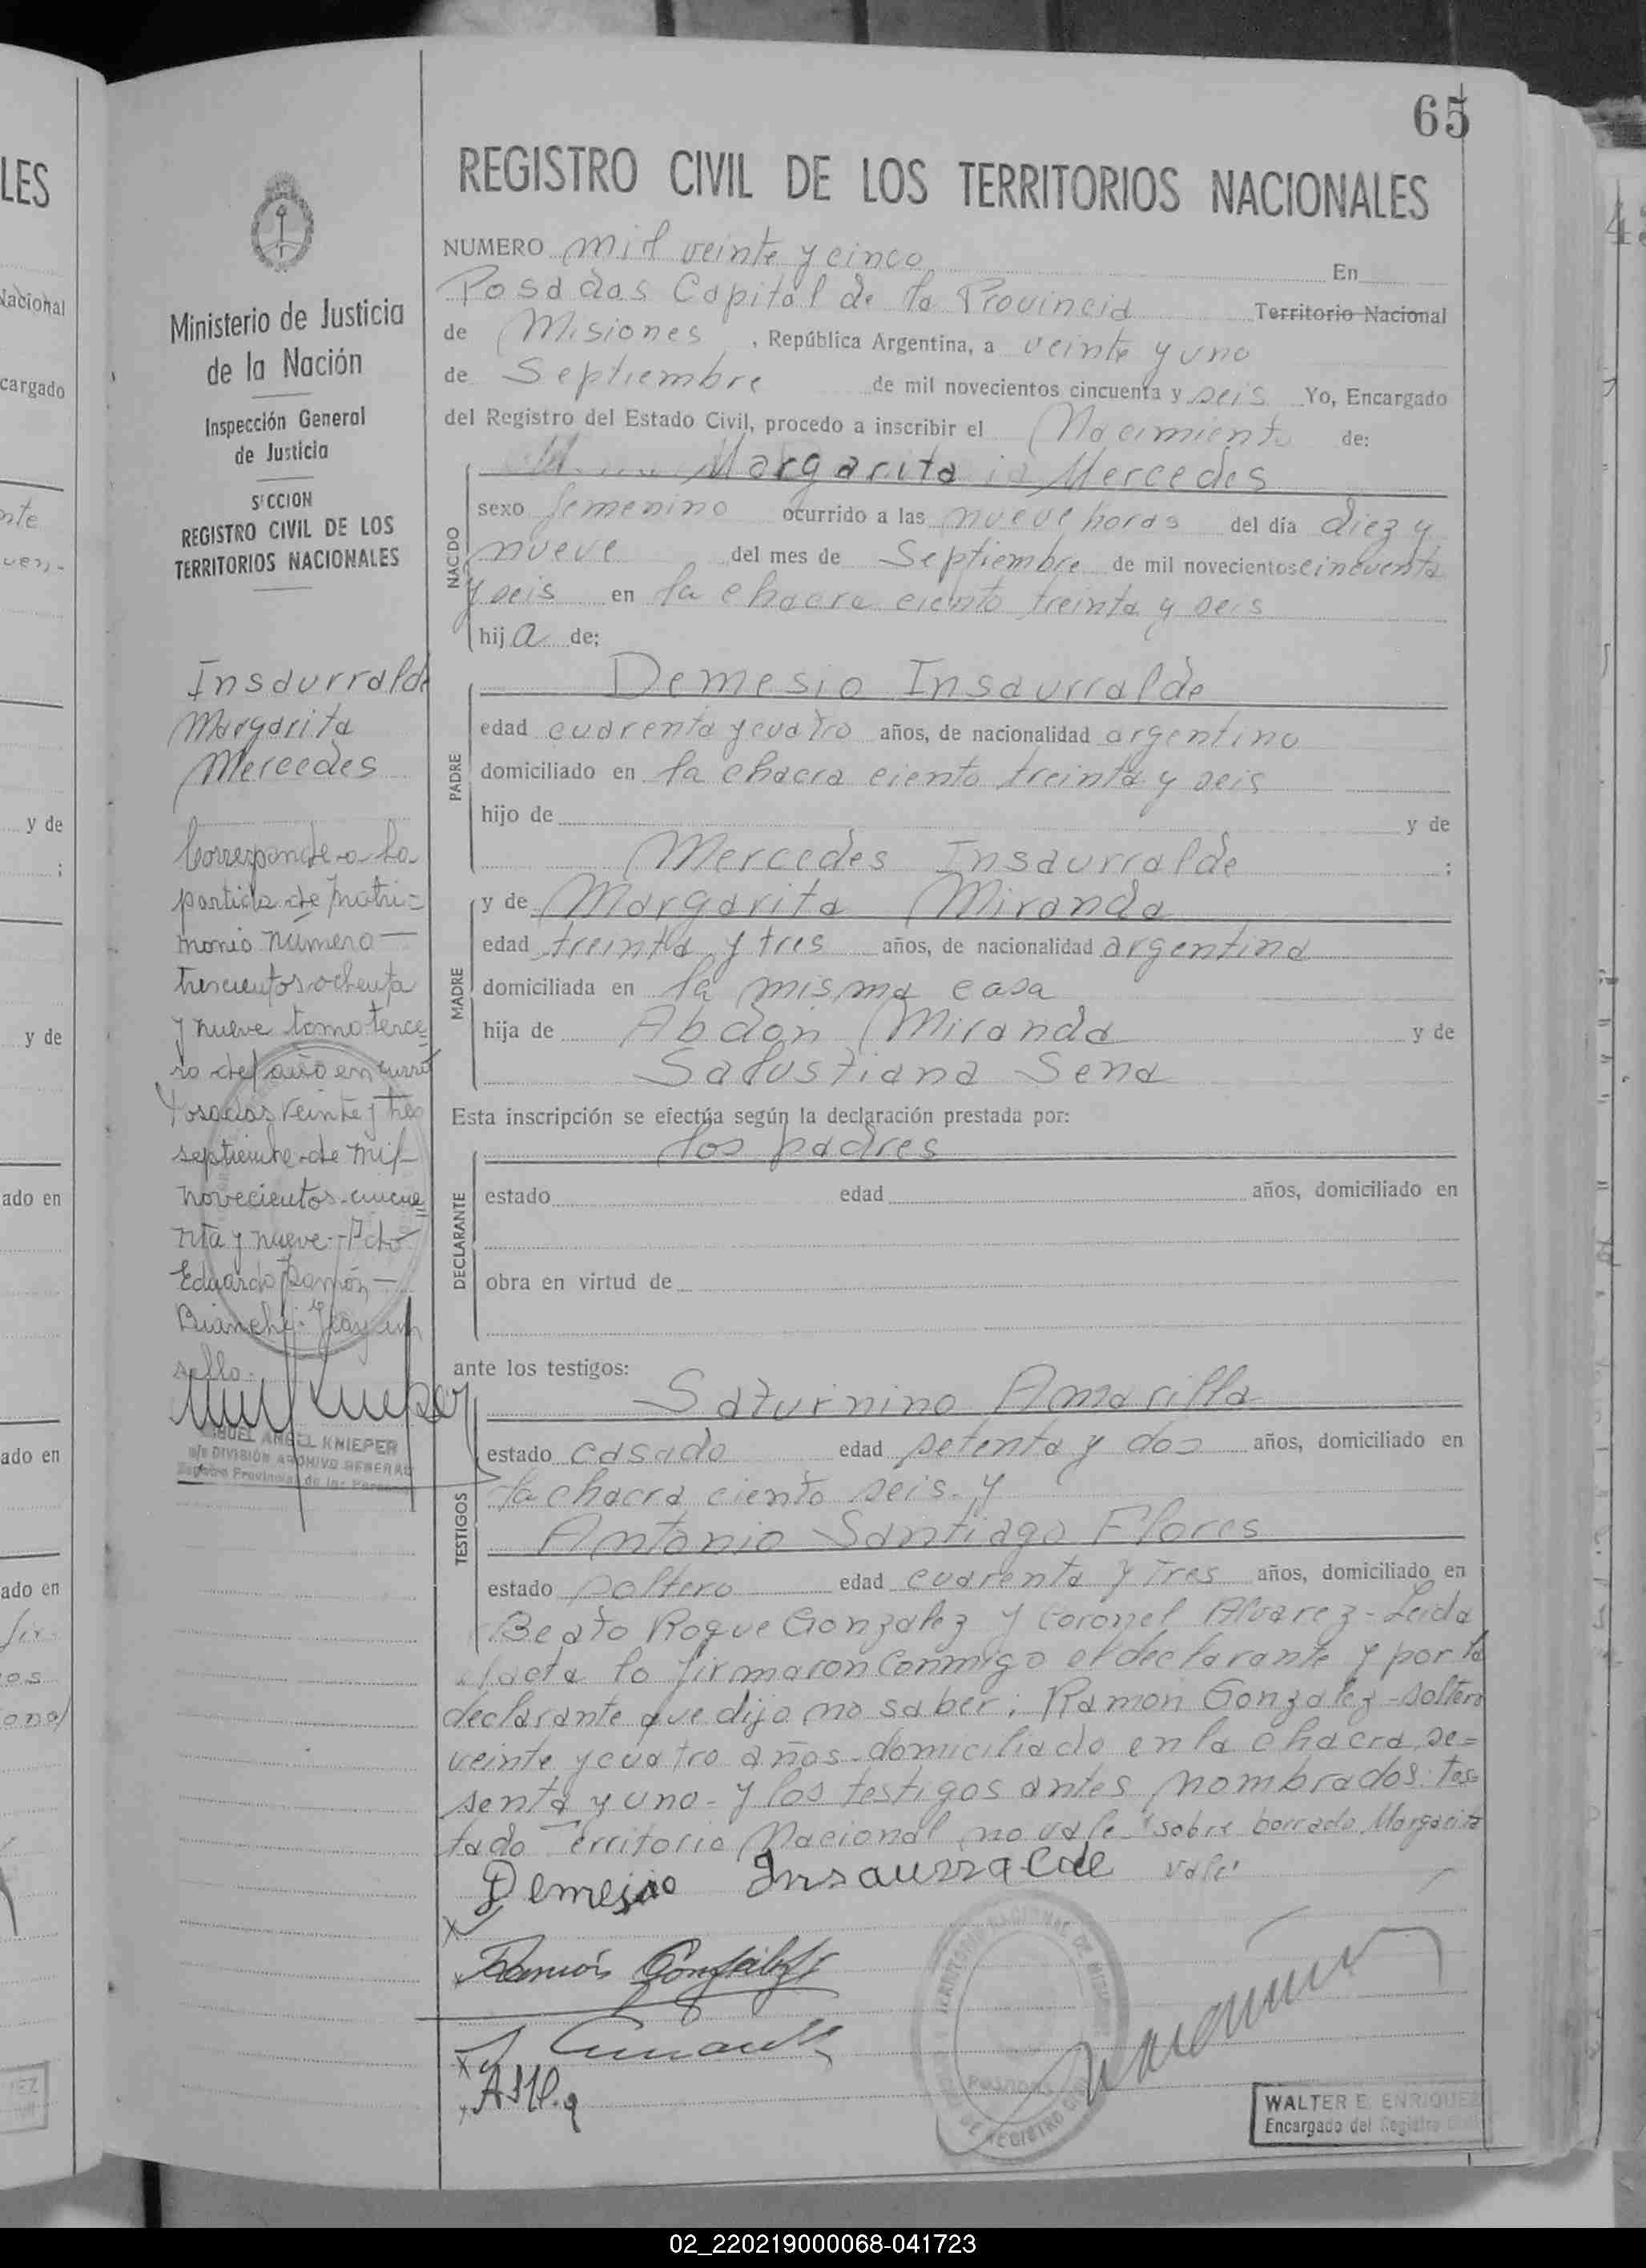 65
REGISTRO CIVIL DE LOS TERRITORIOS NACIONALES
NUMERO mil veinte y cinco En
Posadas Capital de la Provincia Territorio Nacional
de Misiones, República Argentina, a veinte y uno
de Septiembre de mil novecientos cincuenta y seis Yo, Encargado
del Registro del Estado Civil, procedo a inscribir el Nacimiento de:
Margarita Mercedes
NACIDO
sexo femenino ocurrido a las nueve horas del día diez y
nueve del mes de Septiembre de mil novecientos cincuenta
y seis en la chacra ciento treinta y seis
hija de:
PADRE
Demesio Insaurralde
edad cuarenta y cuatro años, de nacionalidad argentino
domiciliado en la chacra ciento treinta y seis
hijo de y de
Mercedes Insaurralde ;
MADRE
y de Margarita Miranda
edad treinta y tres años, de nacionalidad argentina
domiciliada en la misma casa
hija de Abdon Miranda y de
Salustiana Sena
Esta inscripción se efectúa según la declaración prestada por:
los padres
DECLARANTE
estado edad años, domiciliado en
obra en virtud de
ante los testigos:
TESTIGOS
Saturnino Amarilla
estado casado edad setenta y dos años, domiciliado en
la chacra ciento seis. y
Antonio Santiago Flores
estado soltero edad cuarenta y tres años, domiciliado en
Beato Roque Gonzalez y Coronel Alvarez - Leida
el acta la firmaron conmigo el declarante y por la
declarante que dijo no saber; Ramon Gonzalez - soltero
veinte y cuatro años - domiciliado en la chacra se=
senta y uno - y los testigos antes nombrados: tes
tado Territorio Nacional no vale "sobre borrado Margarita
vale"
Demesio Insaurralde
Ramón González
WALTER E. ENRIQUEZ
Encargado del Registro Civil
Ministerio de Justicia
de la Nación
Inspección General
de Justicia
SECCION
REGISTRO CIVIL DE LOS
TERRITORIOS NACIONALES
Insaurralde
Margarita
Mercedes
Corresponde a la
partida de matri=
monio número
trescientos ochenta
y nueve tomo terce=
ro del año en curso
Posadas veinte y tres
septiembre de mil
novecientos cincue=
nta y nueve - Fdo
Eduardo Ramón
Bianchi - Hay un
sello.
MIGUEL ANGEL KNIEPER
DIVISIÓN ARCHIVO GENERAL
Registro Provincial de las Personas
LES
Nacional
cargado
y de
;
y de
ado en
ado en
ado en
02_220219000068-041723